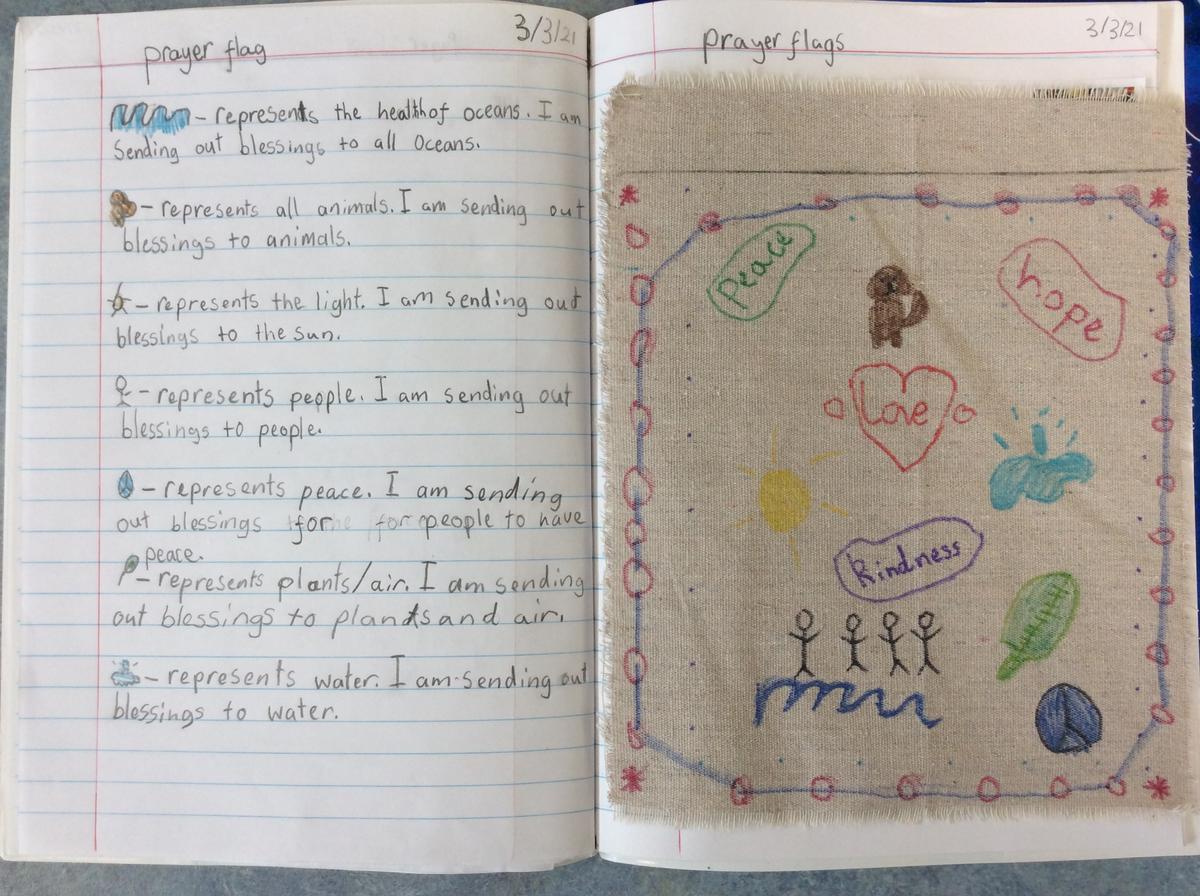 3/3/21
prayer flag
- represents the health of oceans. I am
Sending out blessings to all Oceans.
- represents all animals. I am sending out
blessings to animals.
- represents the light. I am sending out
blessings to the sun.
- represents people. I am sending out
blessings to people.
- represents peace. I am sending
out blessings for for people to have
peace.
- represents plants/air. I am sending
out blessings to plants and air.
- represents water. I am sending out
blessings to water.
3/3/21
prayer flags
Peace
hope
Love
Kindness